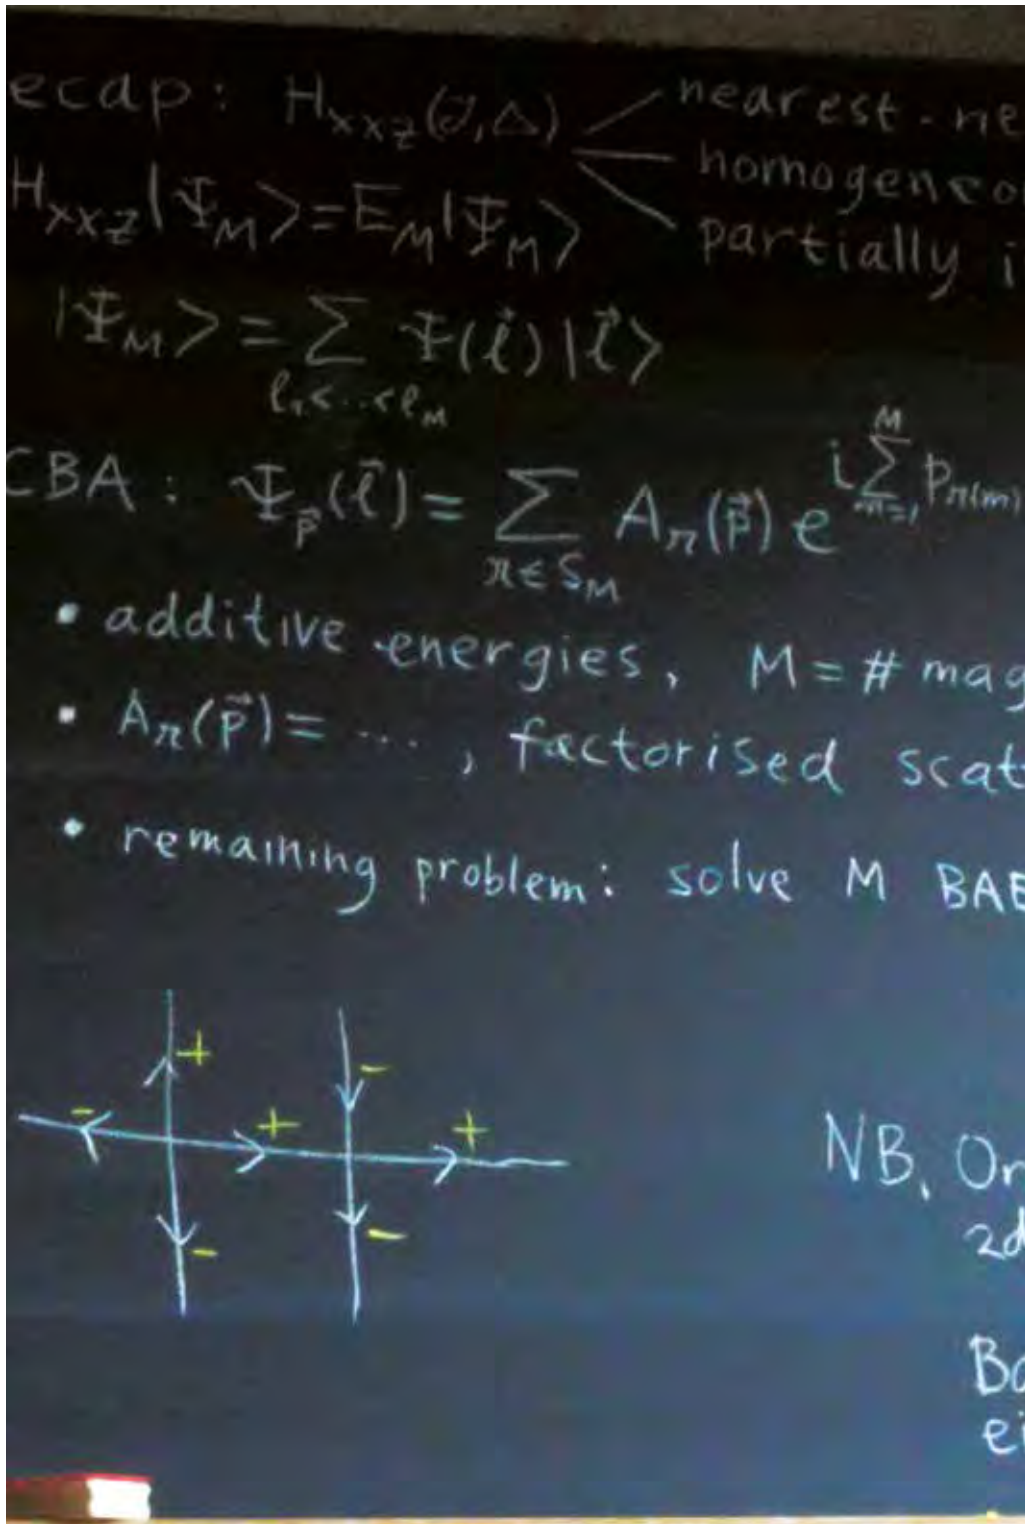 ecap: H_xxz(J,Δ) nearest-ne
homogeneo
H_xxz|Ψ_M>=E_M|Ψ_M> partially i
|Ψ_M>=∑_{ℓ₁<...<ℓ_M} Ψ(ℓ⃗)|ℓ⃗>
CBA: Ψ_p⃗(ℓ⃗)=∑_{π∈S_M} A_π(p⃗) e^{i∑_{m=1}^{M} p_π(m)}
• additive energies, M=# mag
• A_π(p⃗)= ..., factorised scat
• remaining problem: solve M BAE
+ -
- + +
- -
NB. On
2d
Ba
ei